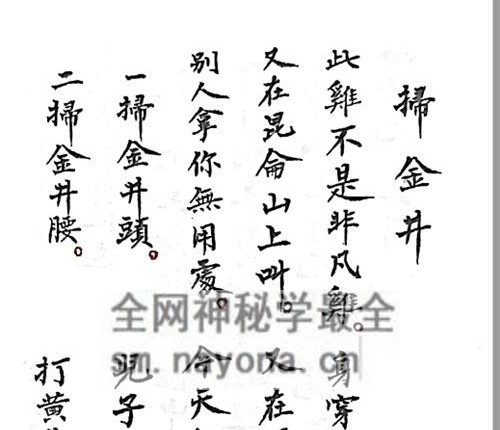 掃金井
此雞不是非凡雞。身穿
又在昆侖山上叫。又在
別人拿你無用處。今天
一掃金井頭。兒子
二掃金井腰。打黃
全网神秘学最全
sm.nayona.cn